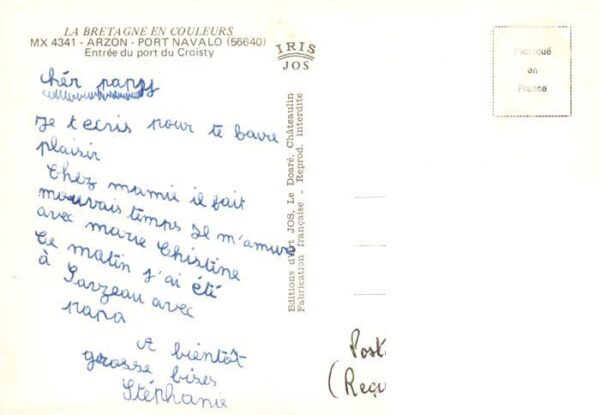 LA BRETAGNE EN COULEURS
MX 4341 - ARZON - PORT NAVALO (56640)
Entrée du port du Croisty
IRIS
JOS
Fabriqué
en
France
chér papy
je t ecris pour te
plaisir
Chez mamie il fait
mauvais temps je m'amuse
avec marie Christine
Ce matin j'ai été
à Sarzeau avec
papa
A bientôt
grosse bises
Stéphanie
Editions d'Art JOS, Le Doaré, Châteaulin
Fabrication française - Reprod. interdite
Post
(Requ